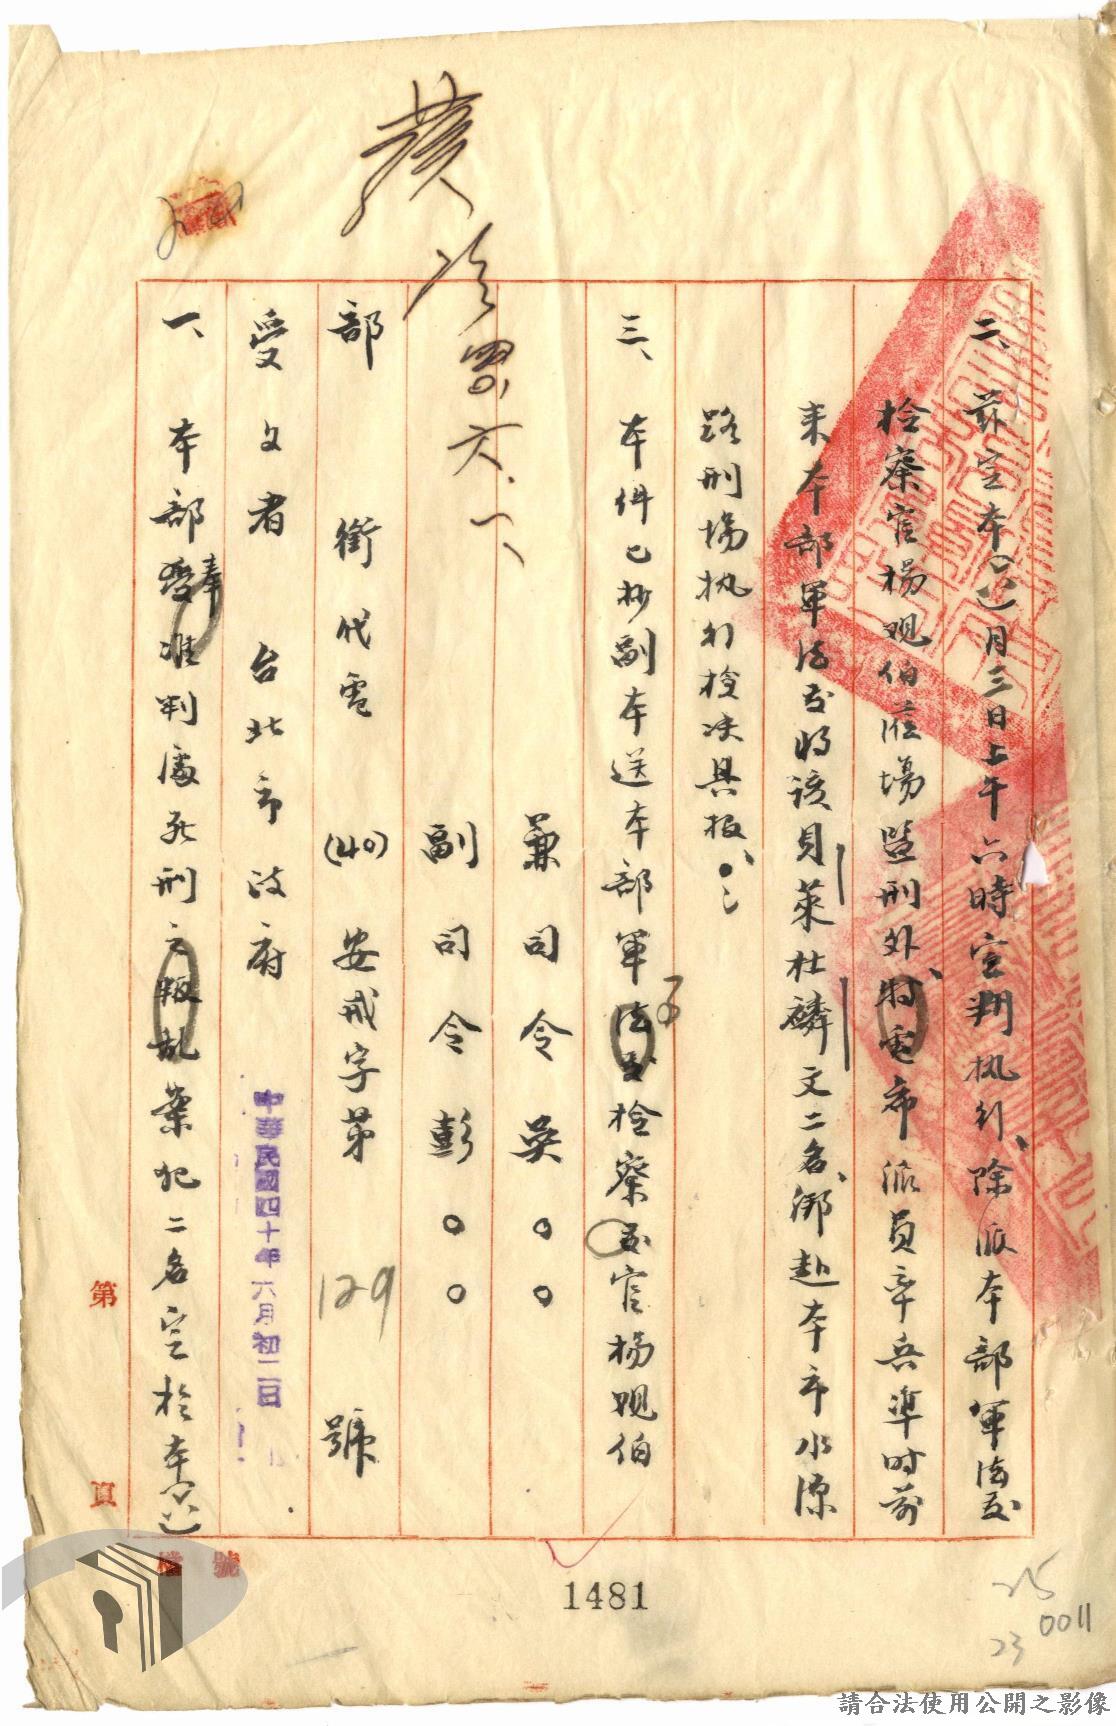 二、茲定本(六)月三日上午六時宣判执行、除派本部軍法处
检察官楊观伯涖場暨刑外、電希派員率兵準时前
来本部軍法处将该貝萊杜麟文二名、綁赴本市水源
路刑場执行枪决具报。
三、本件已抄副本送本部軍法处检察官楊观伯
兼司令吳○○
副司令彭○○
部銜代電(40)安戒字第129號
受文者 台北市政府
中華民國四十年六月初二日
一、本部奉准判處死刑之叛乱案犯二名定於本(六)
發
六、一、
第 頁
檔 號
1481
25
0011
23
請合法使用公開之影像